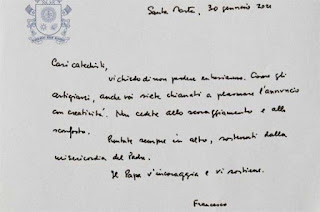 Santa Marta, 30 gennaio 2021
Cari catechisti,
vi chiedo di non perdere entusiasmo. Come gli
artigiani, anche voi siete chiamati a plasmare l'annuncio
con creatività. Non cedete allo scoraggiamento e allo
sconforto.
Puntate sempre in alto, sostenuti dalla
misericordia del Padre.
Il Papa v'incoraggia e vi sostiene.
Francesco